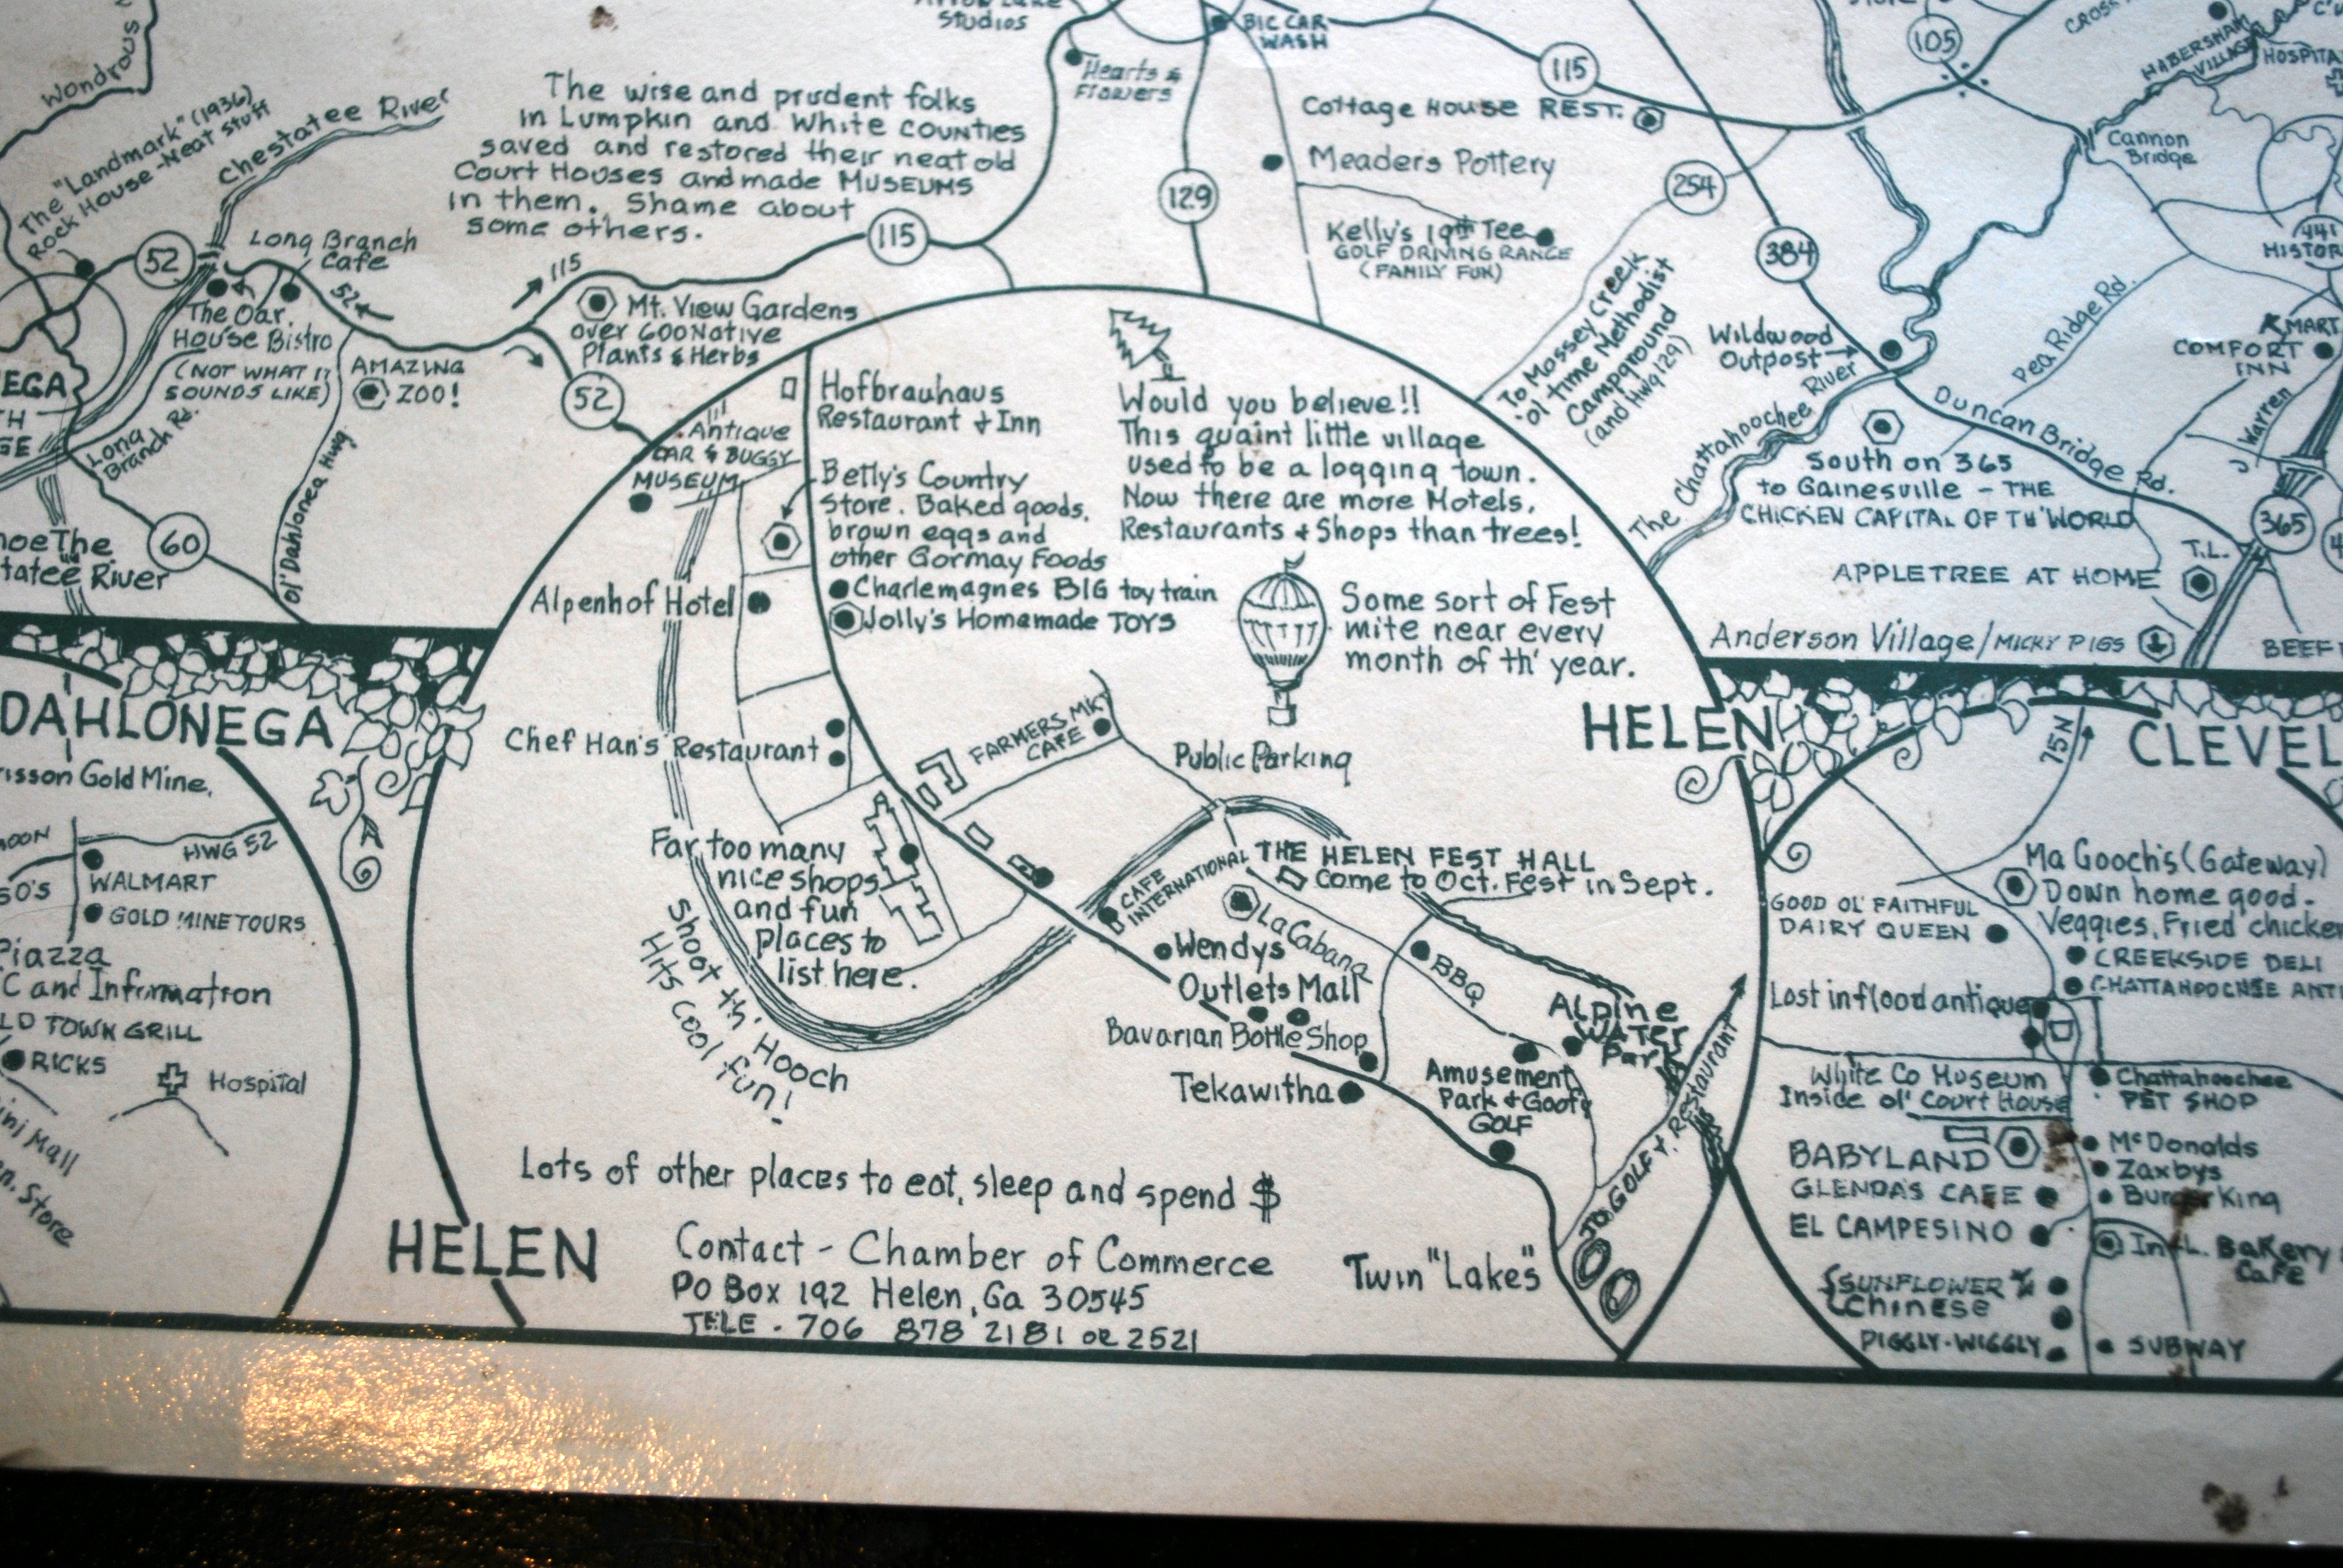 Wondrous
The "Landmark" (1936)
Rock House - Neat Stuff
Chestatee River
52
Long Branch
Cafe
The Oar
House Bistro
(NOT WHAT IT
SOUNDS LIKE)
52
115
AMAZING
ZOO!
Long
Branch Rd.
Ol' Dahlonega Hwy
60
The
River
The wise and prudent folks
in Lumpkin and White counties
saved and restored their neat old
Court Houses and made MUSEUMS
in them. Shame about
some others.
115
Mt. View Gardens
over 600 Native
Plants & Herbs
52
Studios
BIG CAR
WASH
Hearts &
Flowers
129
115
Cottage House REST.
Meaders Pottery
Kelly's 19th Tee
GOLF DRIVING RANGE
(FAMILY FUN)
254
To Mossey Creek
'ol time Methodist
Campground
(and Hwy 129)
384
105
CROSS
HABERSHAM
VILLAGE
HOSPITAL
Cannon
Bridge
441
HISTOR
KMART
COMFORT
INN
J. Warren
Pea Ridge Rd.
Wildwood
Outpost
The Chattahoochee River
Duncan Bridge Rd.
South on 365
to Gainesville - THE
CHICKEN CAPITAL OF TH' WORLD
365
T.L.
APPLETREE AT HOME
Anderson Village/MICKY PIGS
BEEF
Antique
CAR & BUGGY
MUSEUM
Hofbrauhaus
Restaurant & Inn
Betty's Country
Store. Baked goods,
brown eggs and
other Gormay Foods
Charlemagnes BIG toy train
Jolly's Homemade TOYS
Would you believe!!
This quaint little village
used to be a logging town.
Now there are more Motels,
Restaurants & Shops than trees!
Some sort of Fest
mite near every
month of th' year.
Alpenhof Hotel
Chef Han's Restaurant
FARMERS MKT
CAFE
Public Parking
HELEN
Far too many
nice shops
and fun
places to
list here.
Shoot th' Hooch
Hits cool fun!
CAFE
INTERNATIONAL
THE HELEN FEST HALL
Come to Oct. Fest in Sept.
La Cabana
Wendys
Outlets Mall
Bavarian Bottle Shop
Tekawitha
BBQ
Alpine
WATER
Park
Amusement
Park & Goofy
GOLF
TO GOLF & Restaurant
Twin "Lakes"
Lots of other places to eat, sleep and spend $
HELEN
Contact - Chamber of Commerce
PO Box 192 Helen, Ga 30545
TELE. 706 878 2181 or 2521
DAHLONEGA
Gold Mine,
HWG 52
WALMART
GOLD MINE TOURS
Piazza
C and Information
LD TOWN GRILL
RICKS
Hospital
Mall
Store
75 N
CLEVEL
Ma Gooch's (Gateway)
Down home good.
Veggies, Fried chicken
GOOD OL' FAITHFUL
DAIRY QUEEN
CREEKSIDE DELI
CHATTAHOOCHEE ANTI
Lost in flood antique
White Co Museum
Inside ol' Court House
Chattahoochee
PET SHOP
BABYLAND
GLENDA'S CAFE
EL CAMPESINO
McDonalds
Zaxbys
Burger King
Int'L. Bakery
Cafe
SUNFLOWER
Chinese
PIGGLY-WIGGLY
SUBWAY